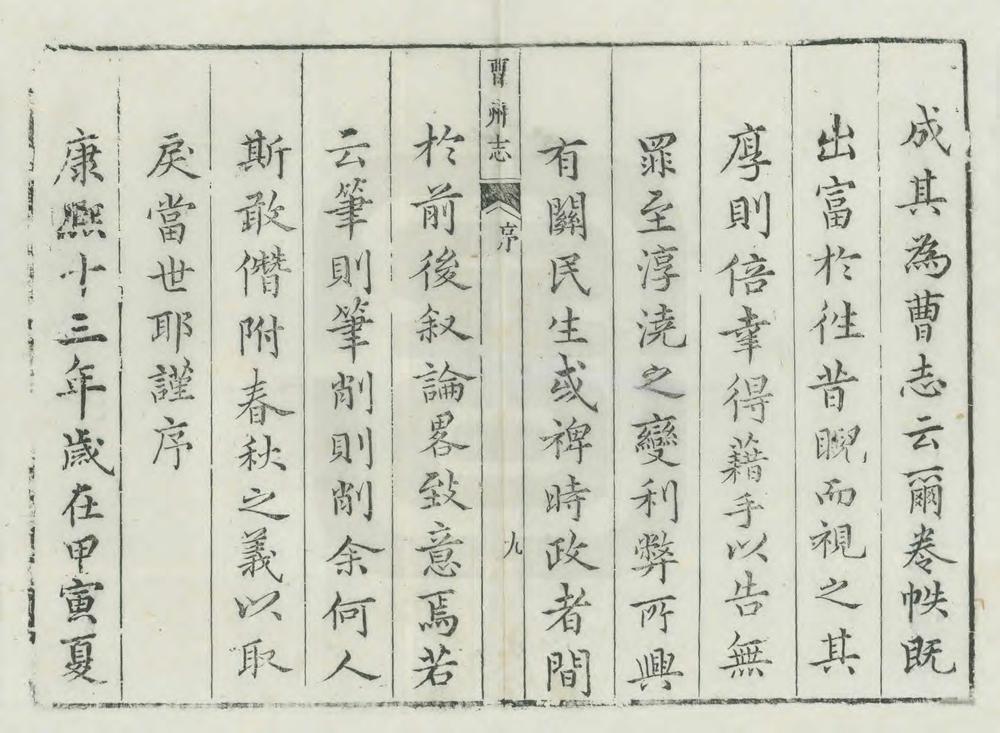 成其為曹志云爾卷帙既
出富於徃昔睨而視之其
厚則倍幸得藉手以告無
罪至淳澆之變利弊所興
有關民生或裨時政者間
曹州志
序
九
於前後叙論畧致意焉若
云筆則筆削則削余何人
斯敢僭附春秋之義以取
戾當世耶謹序
康熙十三年歲在甲寅夏